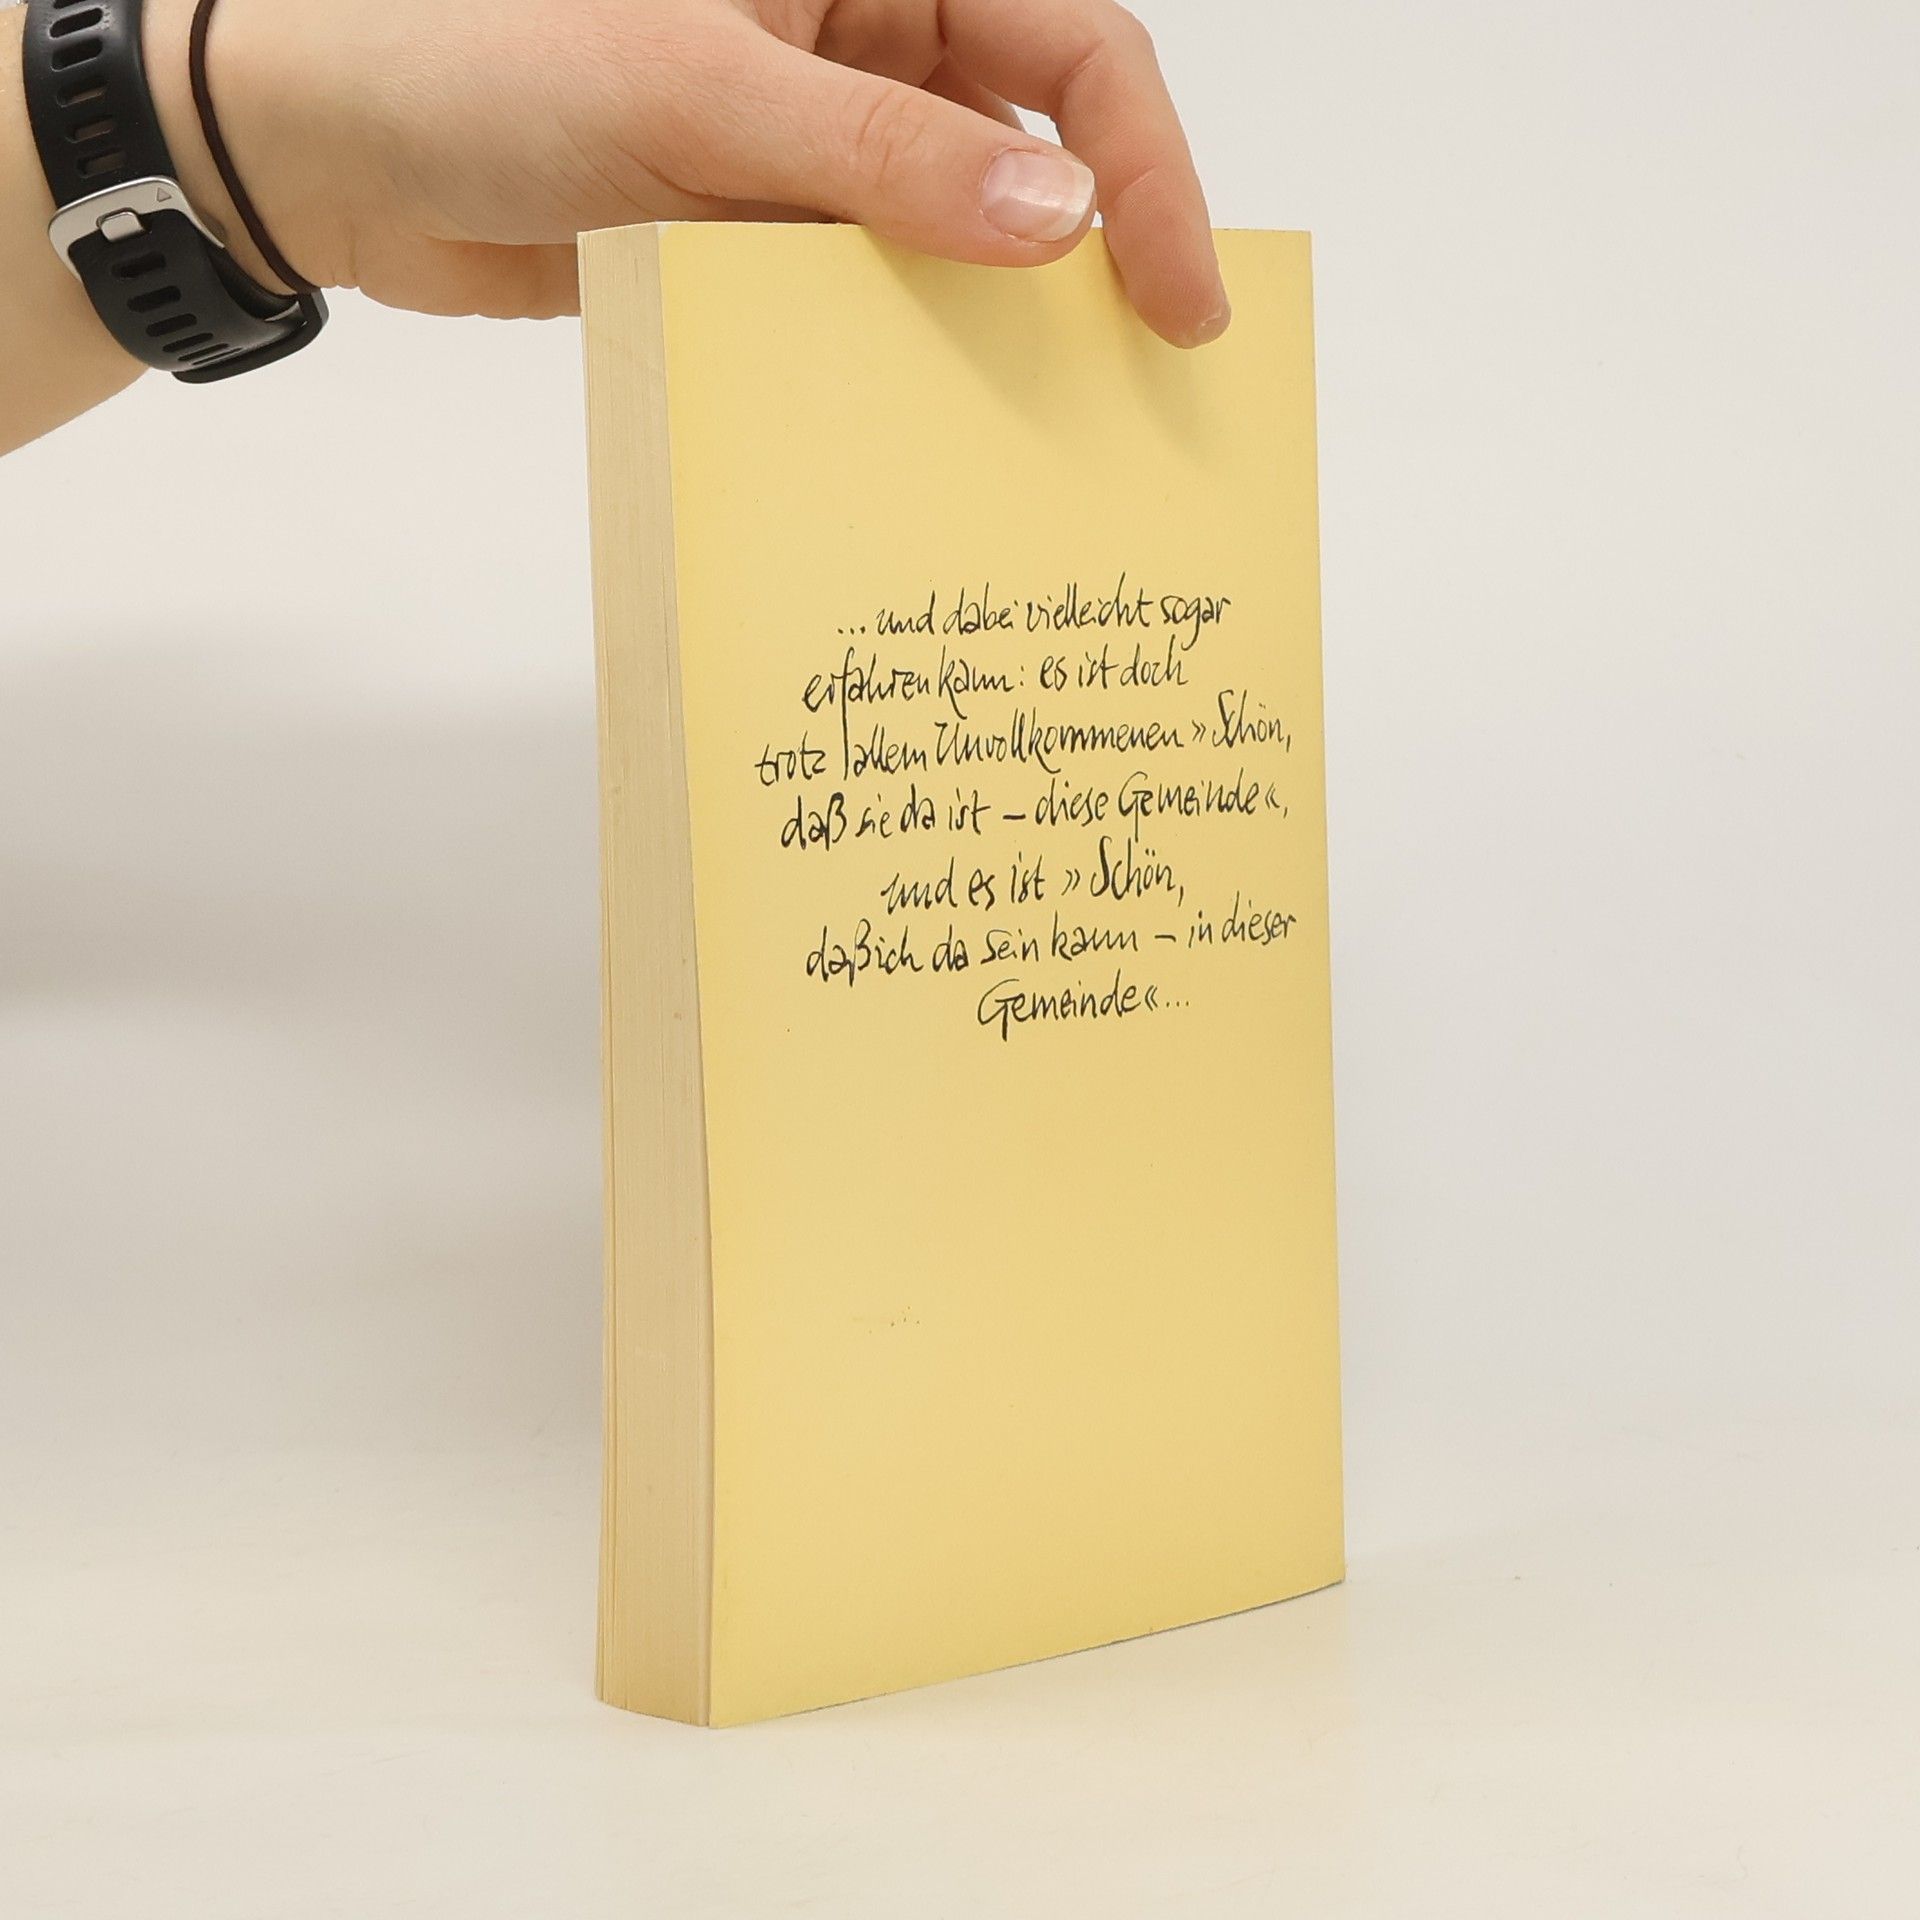 ... und dabei vielleicht sogar
erfahren kann: es ist doch
trotz allem Unvollkommenen »Schön,
daß sie da ist – diese Gemeinde«,
und es ist »Schön,
daß ich da sein kann – in dieser
Gemeinde«...